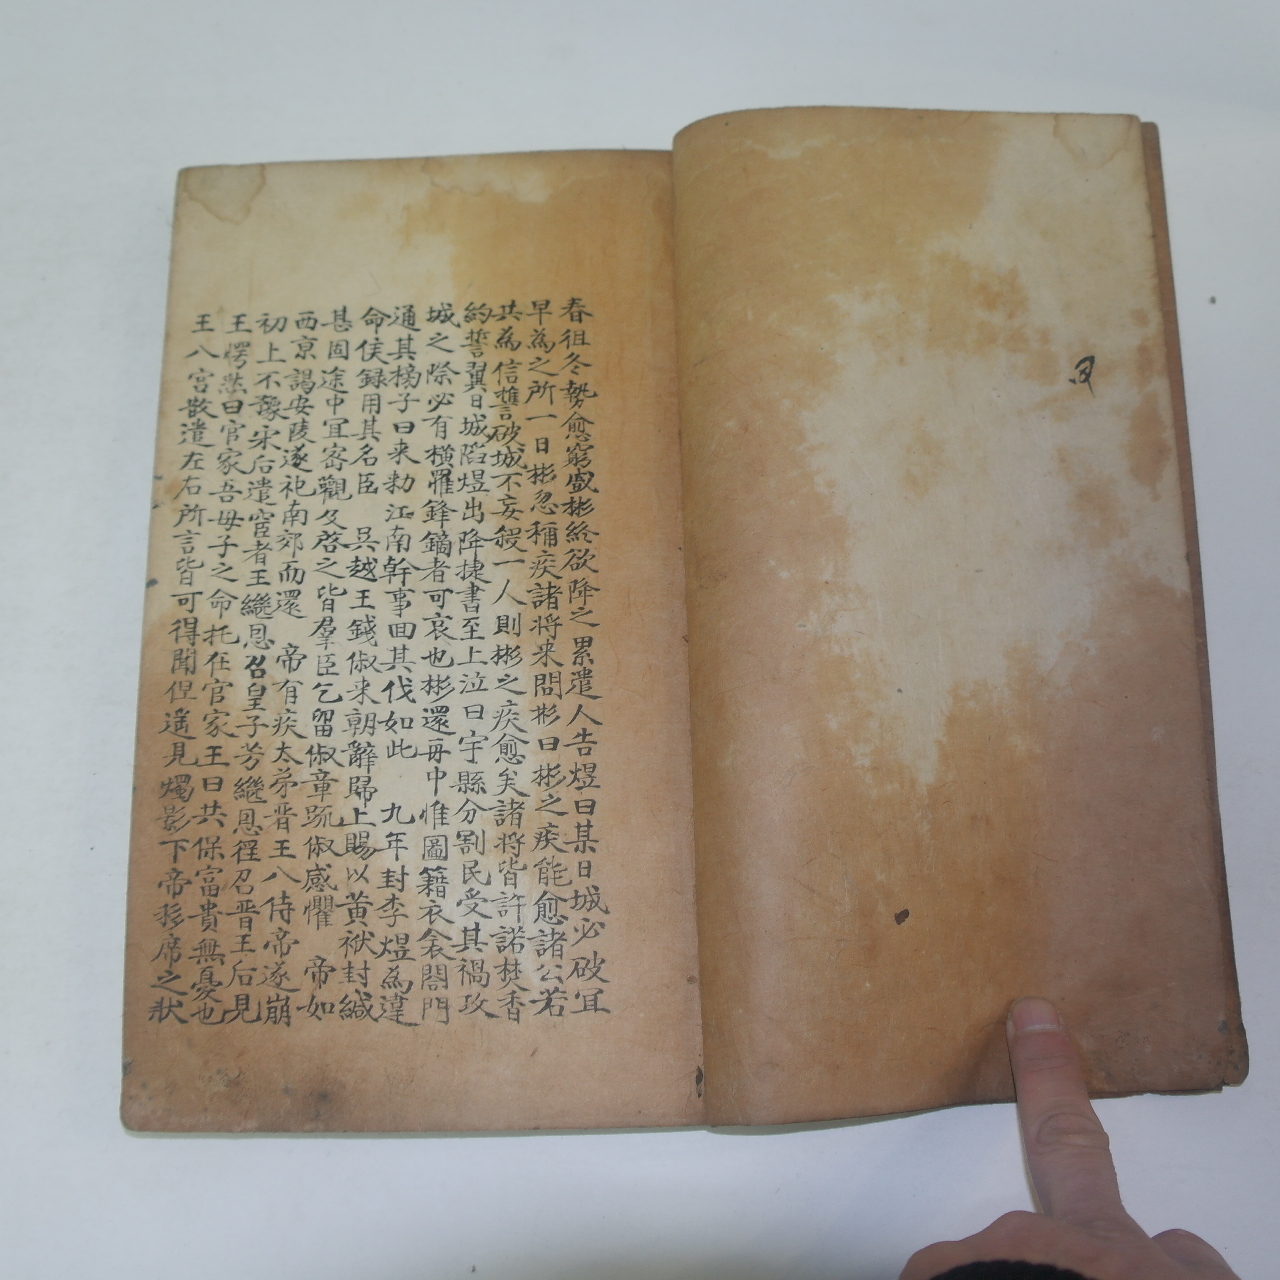 春徂冬勢愈窮蹙彬終欲降之累遣人告煜曰某日城必破冝
早為之所一日彬忽稱疾諸将来問彬曰彬之疾能愈諸公若
共為信誓破城不妄殺一人則彬之疾愈矣諸将皆許諾焚香
約誓翼日城陷煜出降捷書至上泣曰宇縣分割民受其禍攻
城之際必有横罹鋒鏑者可哀也彬還舟中惟圖籍衣衾閤門
通其榜子曰来勑江南幹事囬其伐如此 九年封李煜為違
命侯録用其名臣 吳越王錢俶来朝辭歸上賜以黄袱封緘
甚固途中冝密觀及啓之皆羣臣乞留俶章疏俶感懼 帝如
西京謁安陵遂祀南郊而還 帝有疾太弟晋王入侍帝遂崩
初上不豫宋后遣宦者王繼恩召皇子芳繼恩徑召晋王后見
王愕然曰官家吾母子之命托在官家王曰共保富貴無憂也
王入宮散遣左右所言皆可得聞但遥見燭影下帝移席之狀